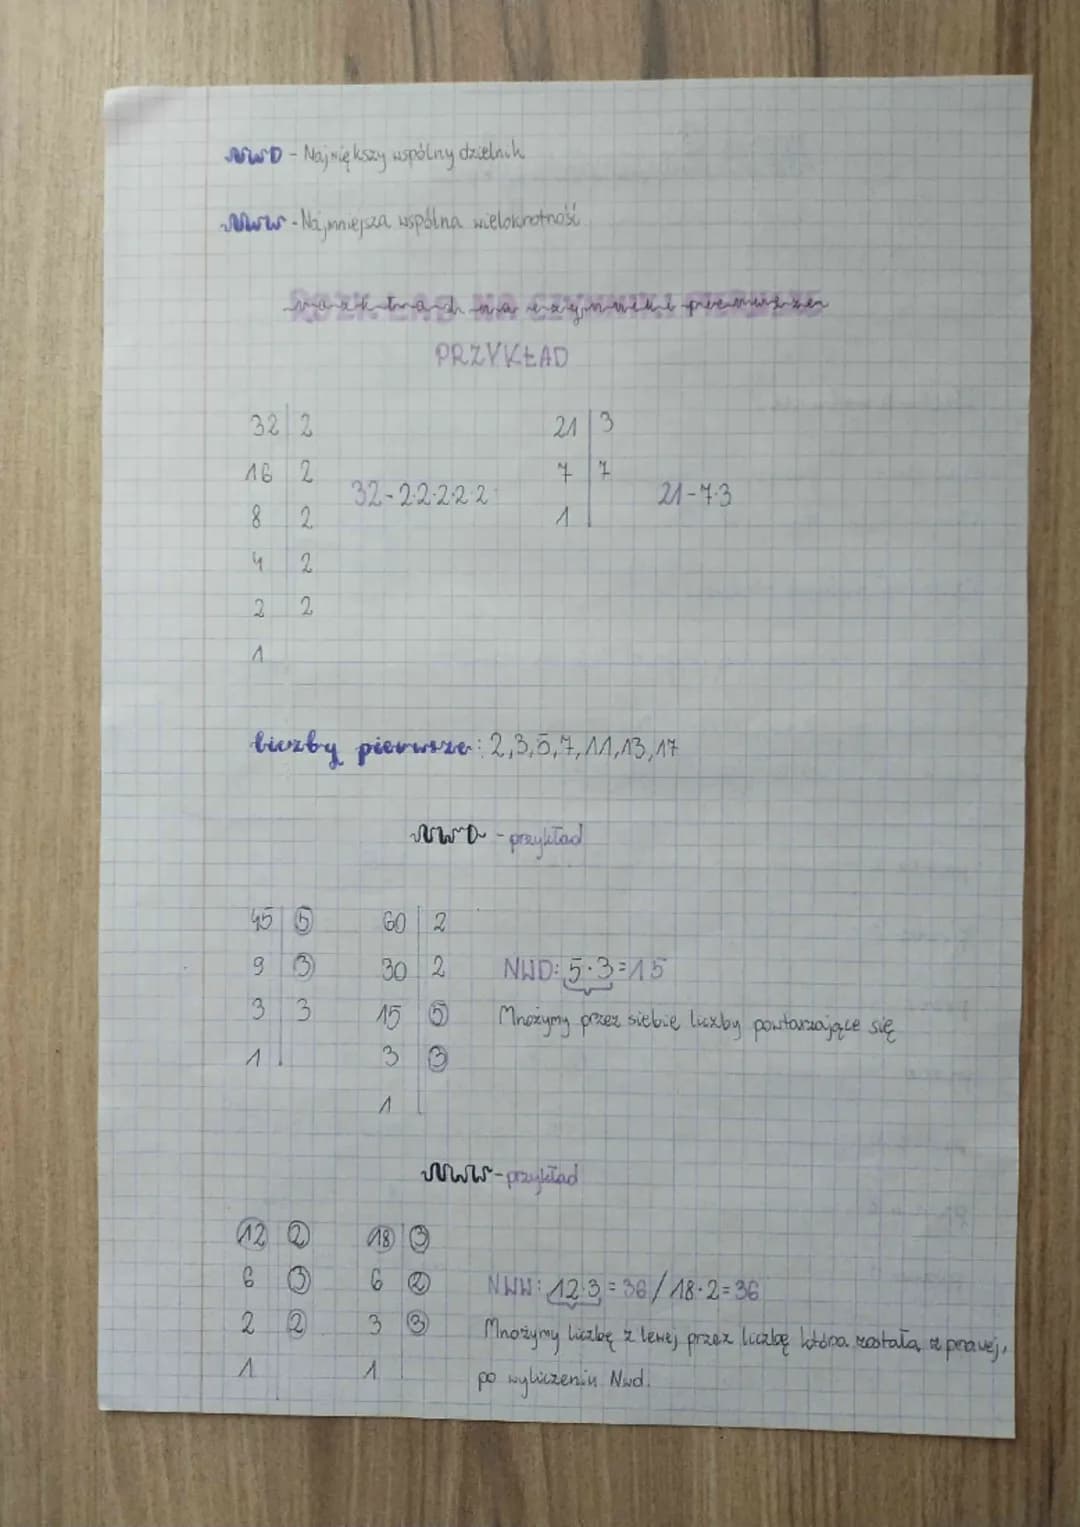 NWD - Największy wspólny dzielnik
NWW - Najmniejsza wspólna wielokrotność
rozkład na czynniki pierwsze
PRZYKŁAD
32 2
16 2
8 2
4 2
2 2
1
32-2·2·2·2·2
21 3
7 7
1
21-7·3
liczby pierwsze: 2,3,5,7,11,13,17
NWD - przykład
45 5
9 3
3 3
1
60 2
30 2
15 5
3 3
1
NWD: 5·3=15
Mnożymy przez siebie liczby powtarzające się
NWW-przykład
12 2
6 3
2 2
1
18 3
6 2
3 3
1
NWW: 12·3=36/18·2=36
Mnożymy liczbę z lewej przez liczbę która została z prawej,
po wyliczeniu Nwd.